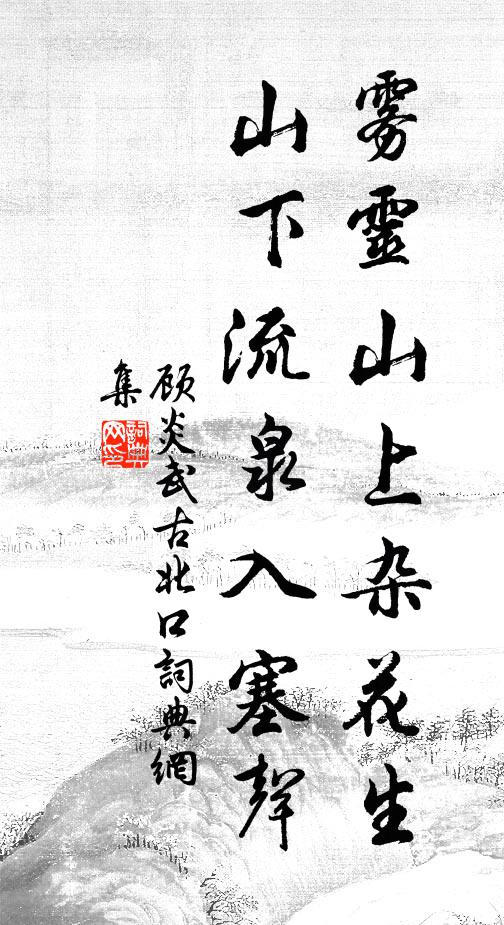 雾靈山上杂花生
山下流泉入塞聲
顾炎武古北口詞典網
集